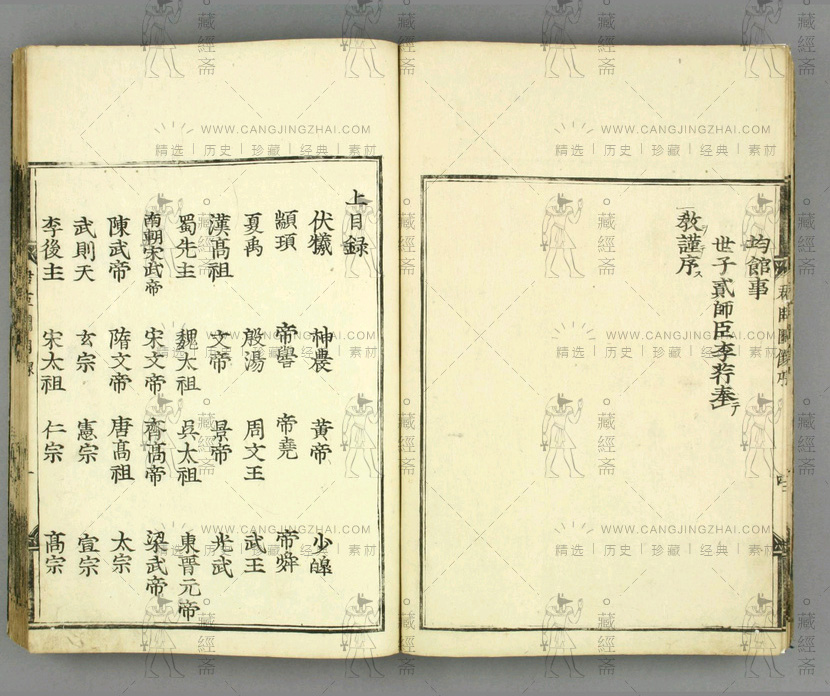 均館事
世子貳師臣李荇奉テ
教謹序ス
上目録
伏犧 神農 黄帝 少皥
顓頊 帝嚳 帝堯 帝舜
夏禹 殷湯 周文王 武王
漢髙祖 文帝 景帝 光武
蜀先主 魏太祖 呉太祖 東晋元帝
南朝宋武帝 宋文帝 齊髙帝 梁武帝
陳武帝 隋文帝 唐髙祖 太宗
武則天 玄宗 憲宗 宣宗
李後主 宋太祖 仁宗 髙宗
WWW.CANGJINGZHAI.COM
精选｜历史｜珍藏｜经典｜素材
藏經斋